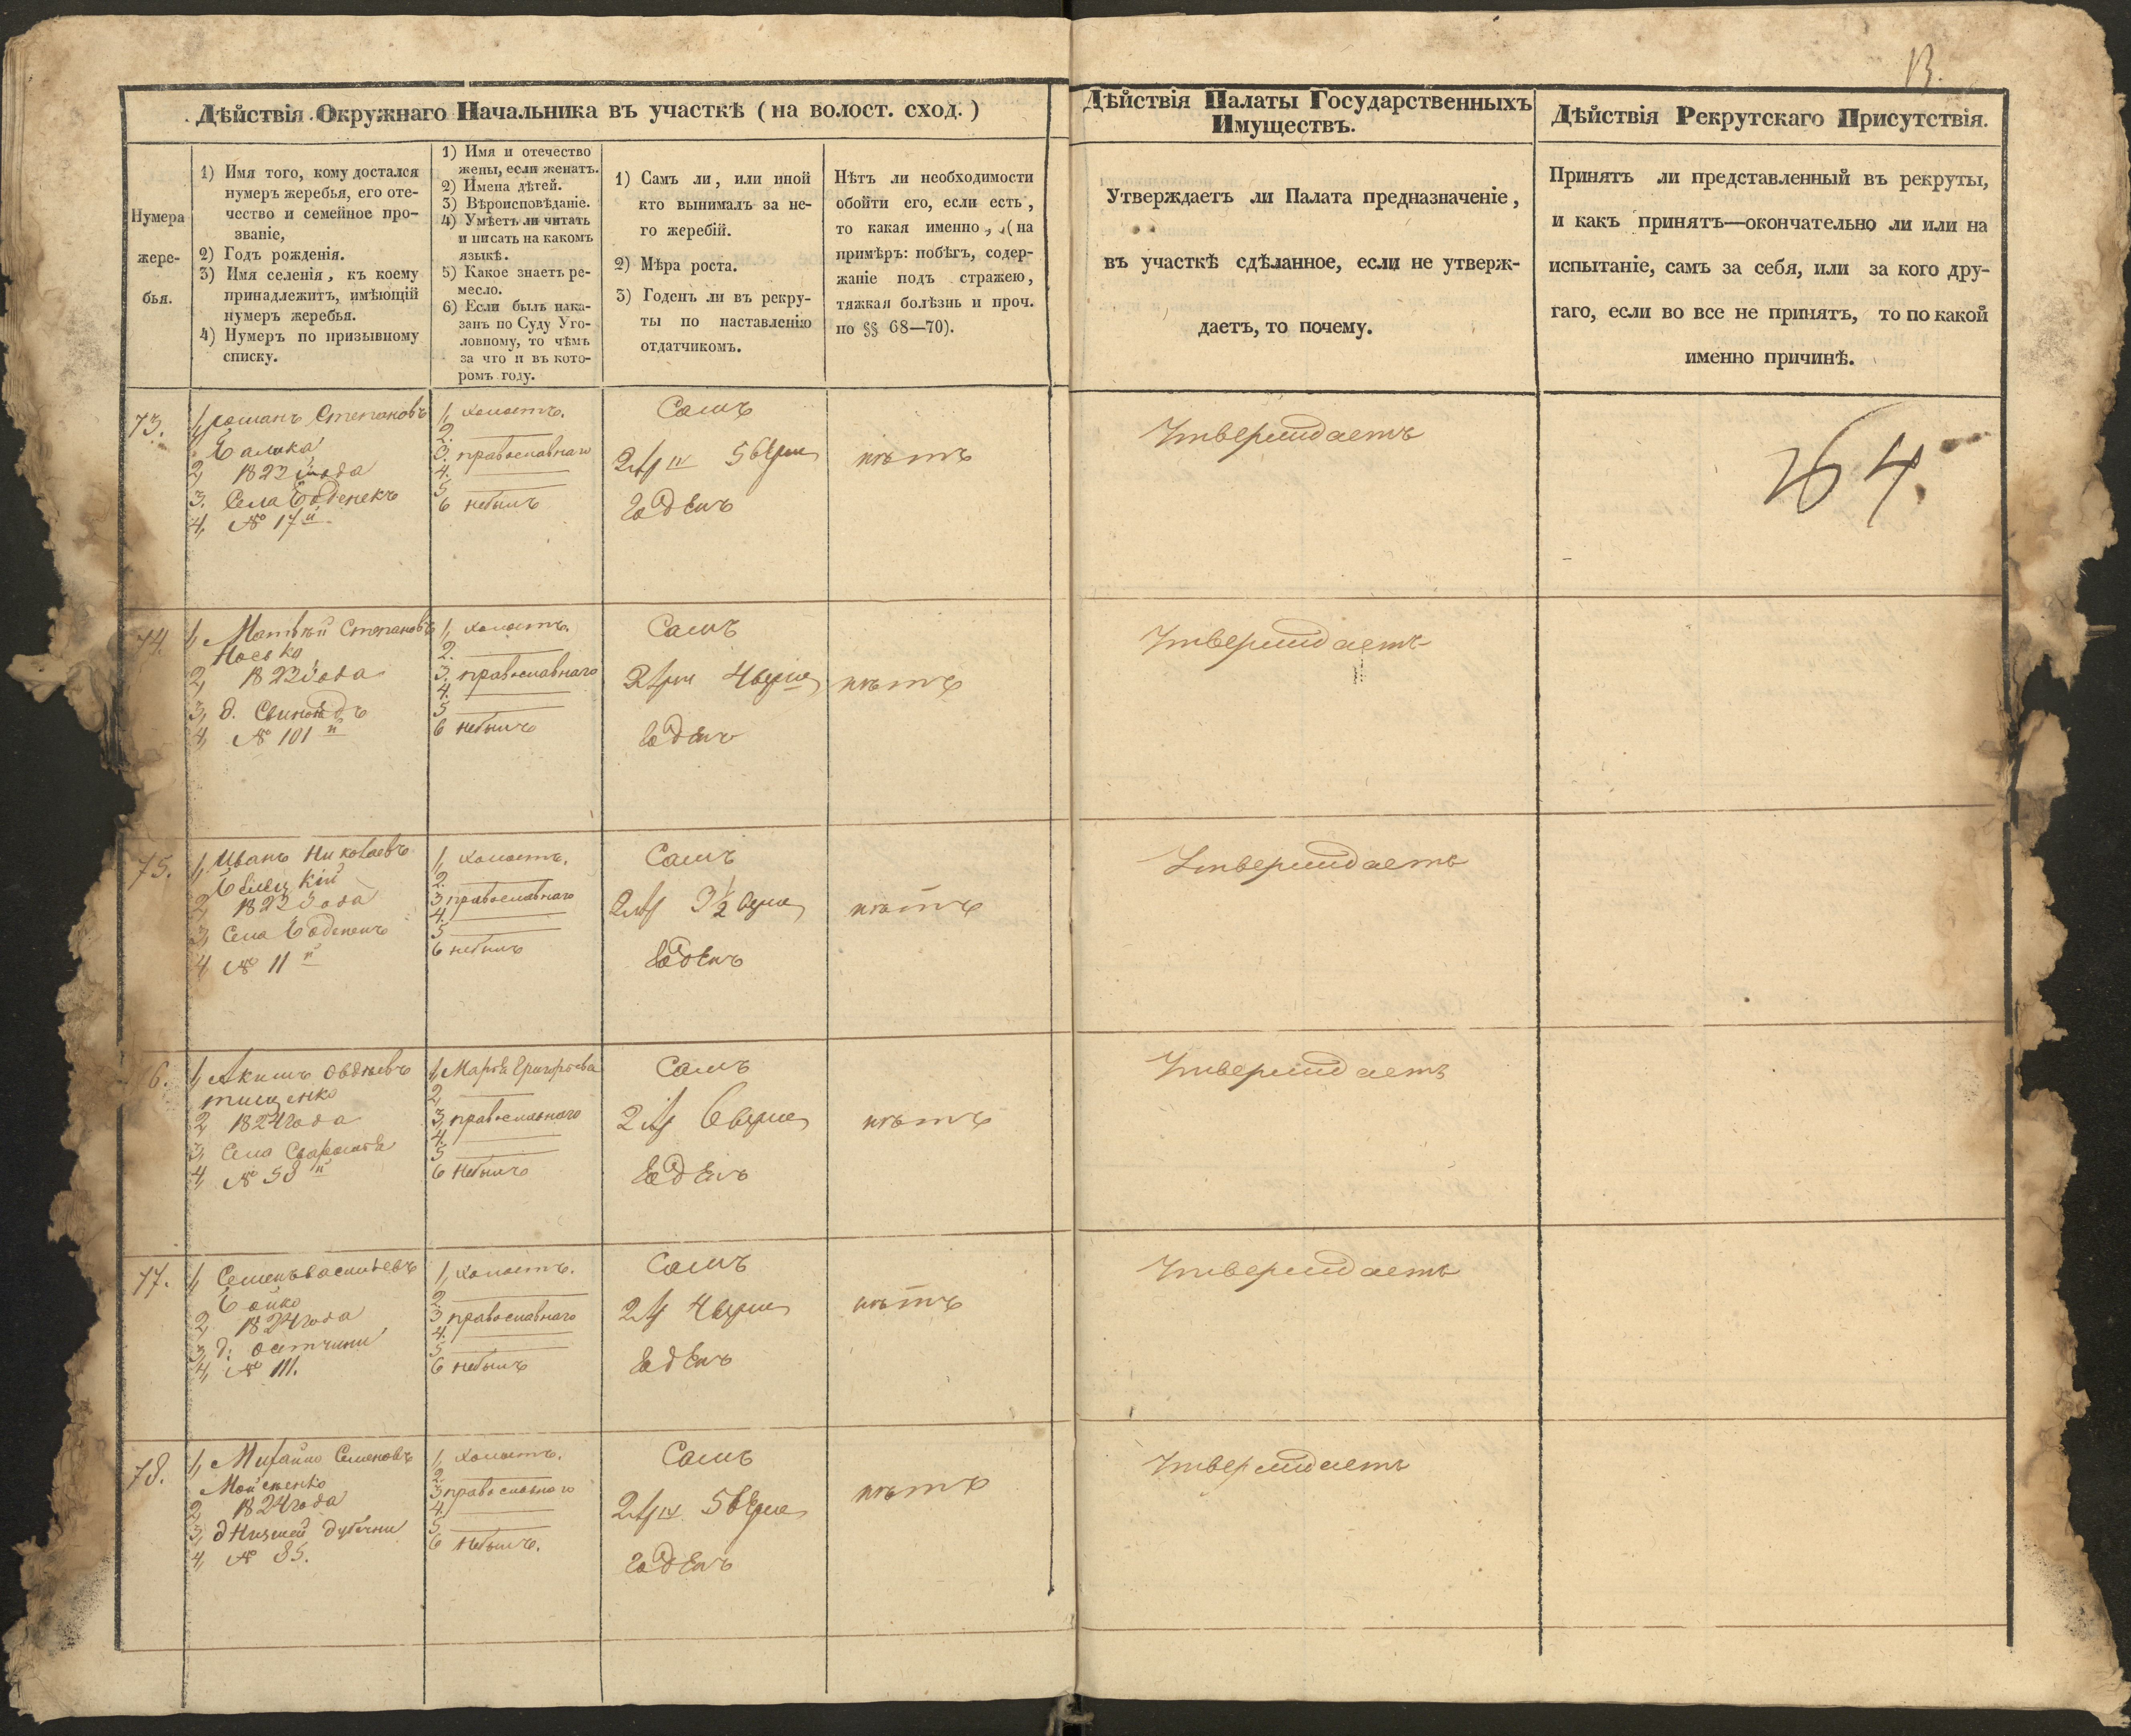 13.
Дѣйствія Окружнаго Начальника въ участкѣ (на волост. сход.)
Дѣйствія Палаты Государственныхъ
Имуществъ.
Дѣйствія Рекрутскаго Присутствія.
Нумера
жере-
бья.
1) Имя того, кому достался
нумеръ жеребья, его оте-
чество и семейное про-
званіе,
2) Годъ рожденія.
3) Имя селенія, къ коему
принадлежитъ, имѣющій
нумеръ жеребья.
4) Нумеръ по призывному
списку.
1) Имя и отечество
жены, если женатъ.
2) Имена дѣтей.
3) Вѣроисповѣданіе.
4) Умѣетъ ли читать
и писать на какомъ
языкѣ.
5) Какое знаетъ ре-
месло.
6) Если былъ нака-
занъ по Суду Уго-
ловному, то чѣмъ
за что и въ кото-
ромъ году.
1) Самъ ли, или иной
кто вынималъ за не-
го жеребій.
2) Мѣра роста.
3) Годенъ ли въ рекру-
ты по наставленію
отдатчикомъ.
Нѣтъ ли необходимости
обойти его, если есть,
то какая именно, (на
примѣръ: побѣгъ, содер-
жаніе подъ стражею,
тяжкая болѣзнь и проч.
по §§ 68—70).
Утверждаетъ ли Палата предназначеніе,
въ участкѣ сдѣланное, если не утверж-
даетъ, то почему.
Принятъ ли представленный въ рекруты,
и какъ принятъ—окончательно ли или на
испытаніе, самъ за себя, или за кого дру-
гаго, если во все не принятъ, то по какой
именно причинѣ.
73.
1, романъ Степановъ
2, 1823 года
3. Села Боденекъ
4, № 17й
1, холостъ.
2.
3. православнаго
4.
5
6 небылъ
Самъ
2 5 верш
годенъ
нѣтъ
Утверждаетъ
264.
74.
1, Матвѣй Степановъ
Носько
2, 1823 года
3, д.
4, № 101й
1, холостъ.
2.
3. православнаго
4.
5
6 небылъ
Самъ
2 4 верш
годенъ
нѣтъ
Утверждаетъ
75.
1, Иванъ Николаевъ
2, 1823 года
3, Села Боденекъ
4 № 11й
1, холостъ.
2.
3 православнаго
4.
5
6 небылъ
Самъ
2 3½ верш
годенъ
нѣтъ
Утверждаетъ
6.
1, Акимъ Овдѣевъ
тищенко
2, 1824 года
3, Села Сваромья
4, № 58й
1, Марья Григорьева
2,
3, православнаго
4.
5
6 небылъ
Самъ
2 6 верш
годенъ
нѣтъ
Утверждаетъ
77.
1, Семенъ Васильевъ
Бойко
2, 1824 года
3, д:
4, № 111.
1, холостъ.
2.
3 православнаго
4.
5.
6 небылъ
Самъ
2 4 верш
годенъ
нѣтъ
Утверждаетъ
78.
1, Михайло Семеновъ
Мойсенко
2, 1824 года
3, д Низшей Дубечни
4, № 85.
1, холостъ.
2
3 православнаго
4.
5.
6 небылъ.
Самъ
2 5 верш
годенъ
нѣтъ
Утверждаетъ